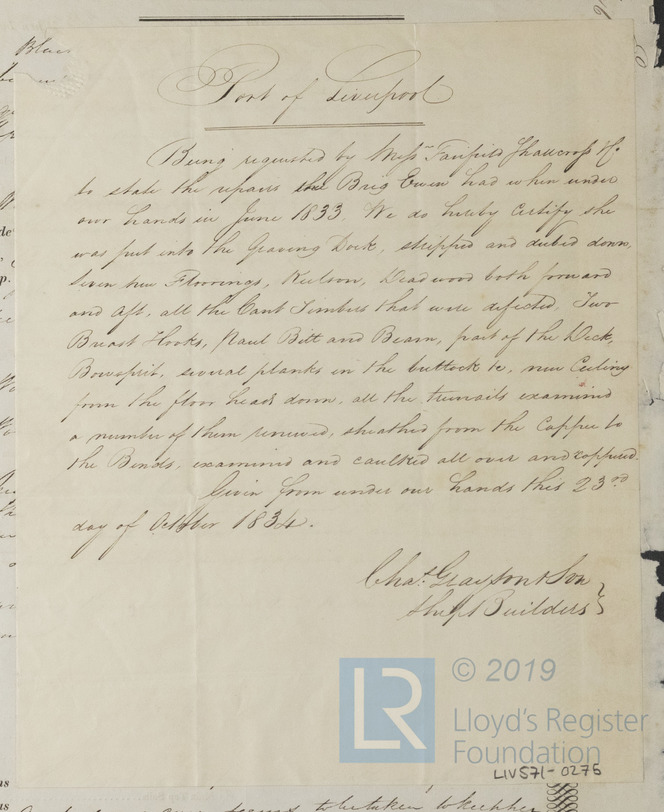 Port of Liverpool
Being requested by Messrs Fairfield Shallcross & Co
to state the repairs the Brig Ewen had when under
our hands in June 1833. We do hereby Certify she
was put into the Graving Dock, stripped and dubed down,
Seven new Floorings, Keelson, Deadwood both forward
and Aft, all the Cant Timbers that were defected, Two
Breast Hooks, Paul Bitt and Beam, part of the Deck,
Bowsprit, several planks in the buttock &c, new Ceiling
from the floor heads down, all the trunails examined
a number of them renewed, sheathed from the Copper to
the Bends, examined and caulked all over and coppered.
Given from under our hands this 23rd
day of October 1834.
Chas. Grayson & Son
Ship Builders
© 2019
LR
Lloyd's Register
Foundation
LIV571-0276